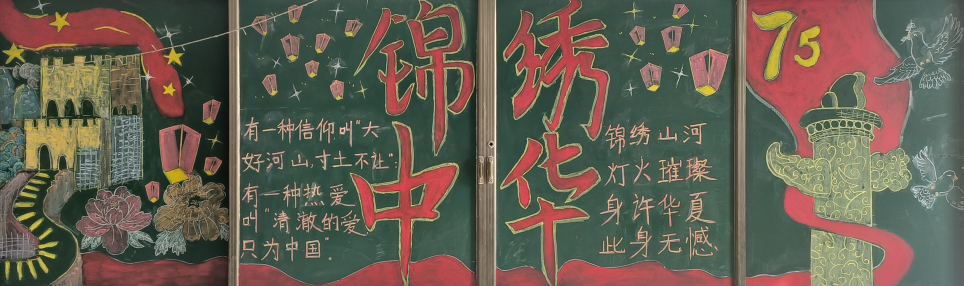 锦绣
中华
有一种信仰叫"大
好河山,寸土不让":
有一种热爱
叫"清澈的爱
只为中国".
锦绣山河
灯火璀璨
身许华夏
此身无憾.
75